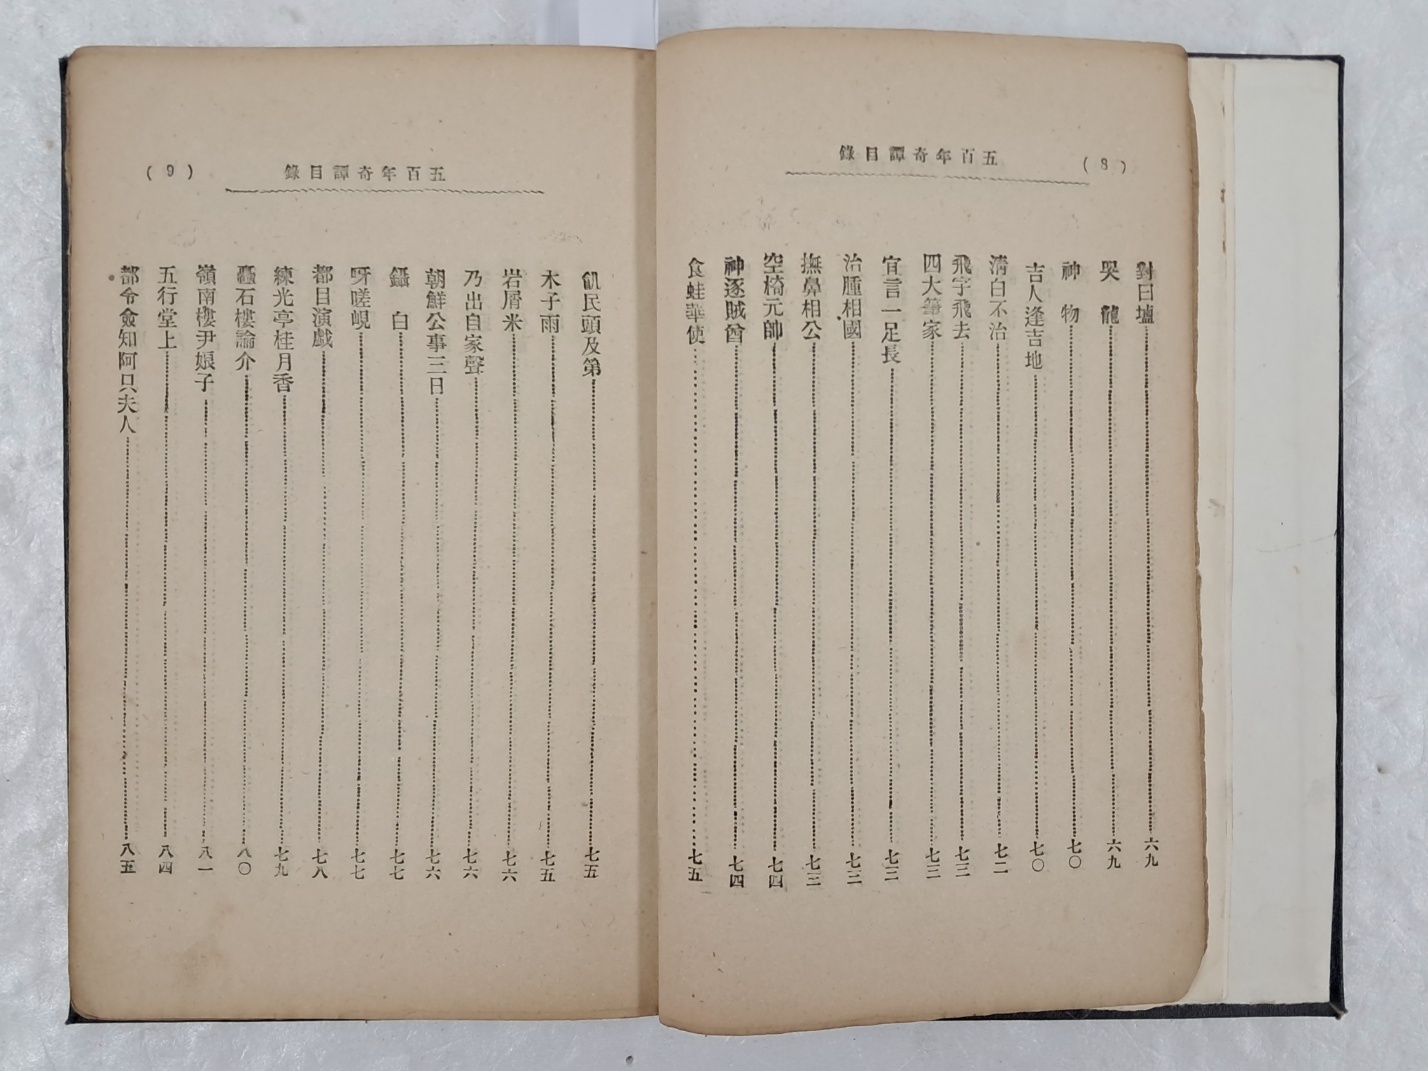 五百年奇譚目錄
(8)
對日壚……六九
哭龍……六九
神物……七〇
吉人逢吉地……七〇
清白不治……七二
飛字飛去……七三
四大筆家……七三
宜言一足長……七三
治腫相國……七三
撫鼻相公……七三
空椅元帥……七四
神逐賊酋……七四
食蛙華使……七五
五百年奇譚目錄
(9)
飢民頭及第……七五
木子雨……七五
岩屑米……七六
乃出自家聲……七六
朝鮮公事三日……七六
鑷白……七七
呀嗟峴……七七
都目演戲……七八
練光亭桂月香……七九
矗石樓論介……八〇
嶺南樓尹娘子……八一
五行堂上……八四
都令僉知阿只夫人……八五